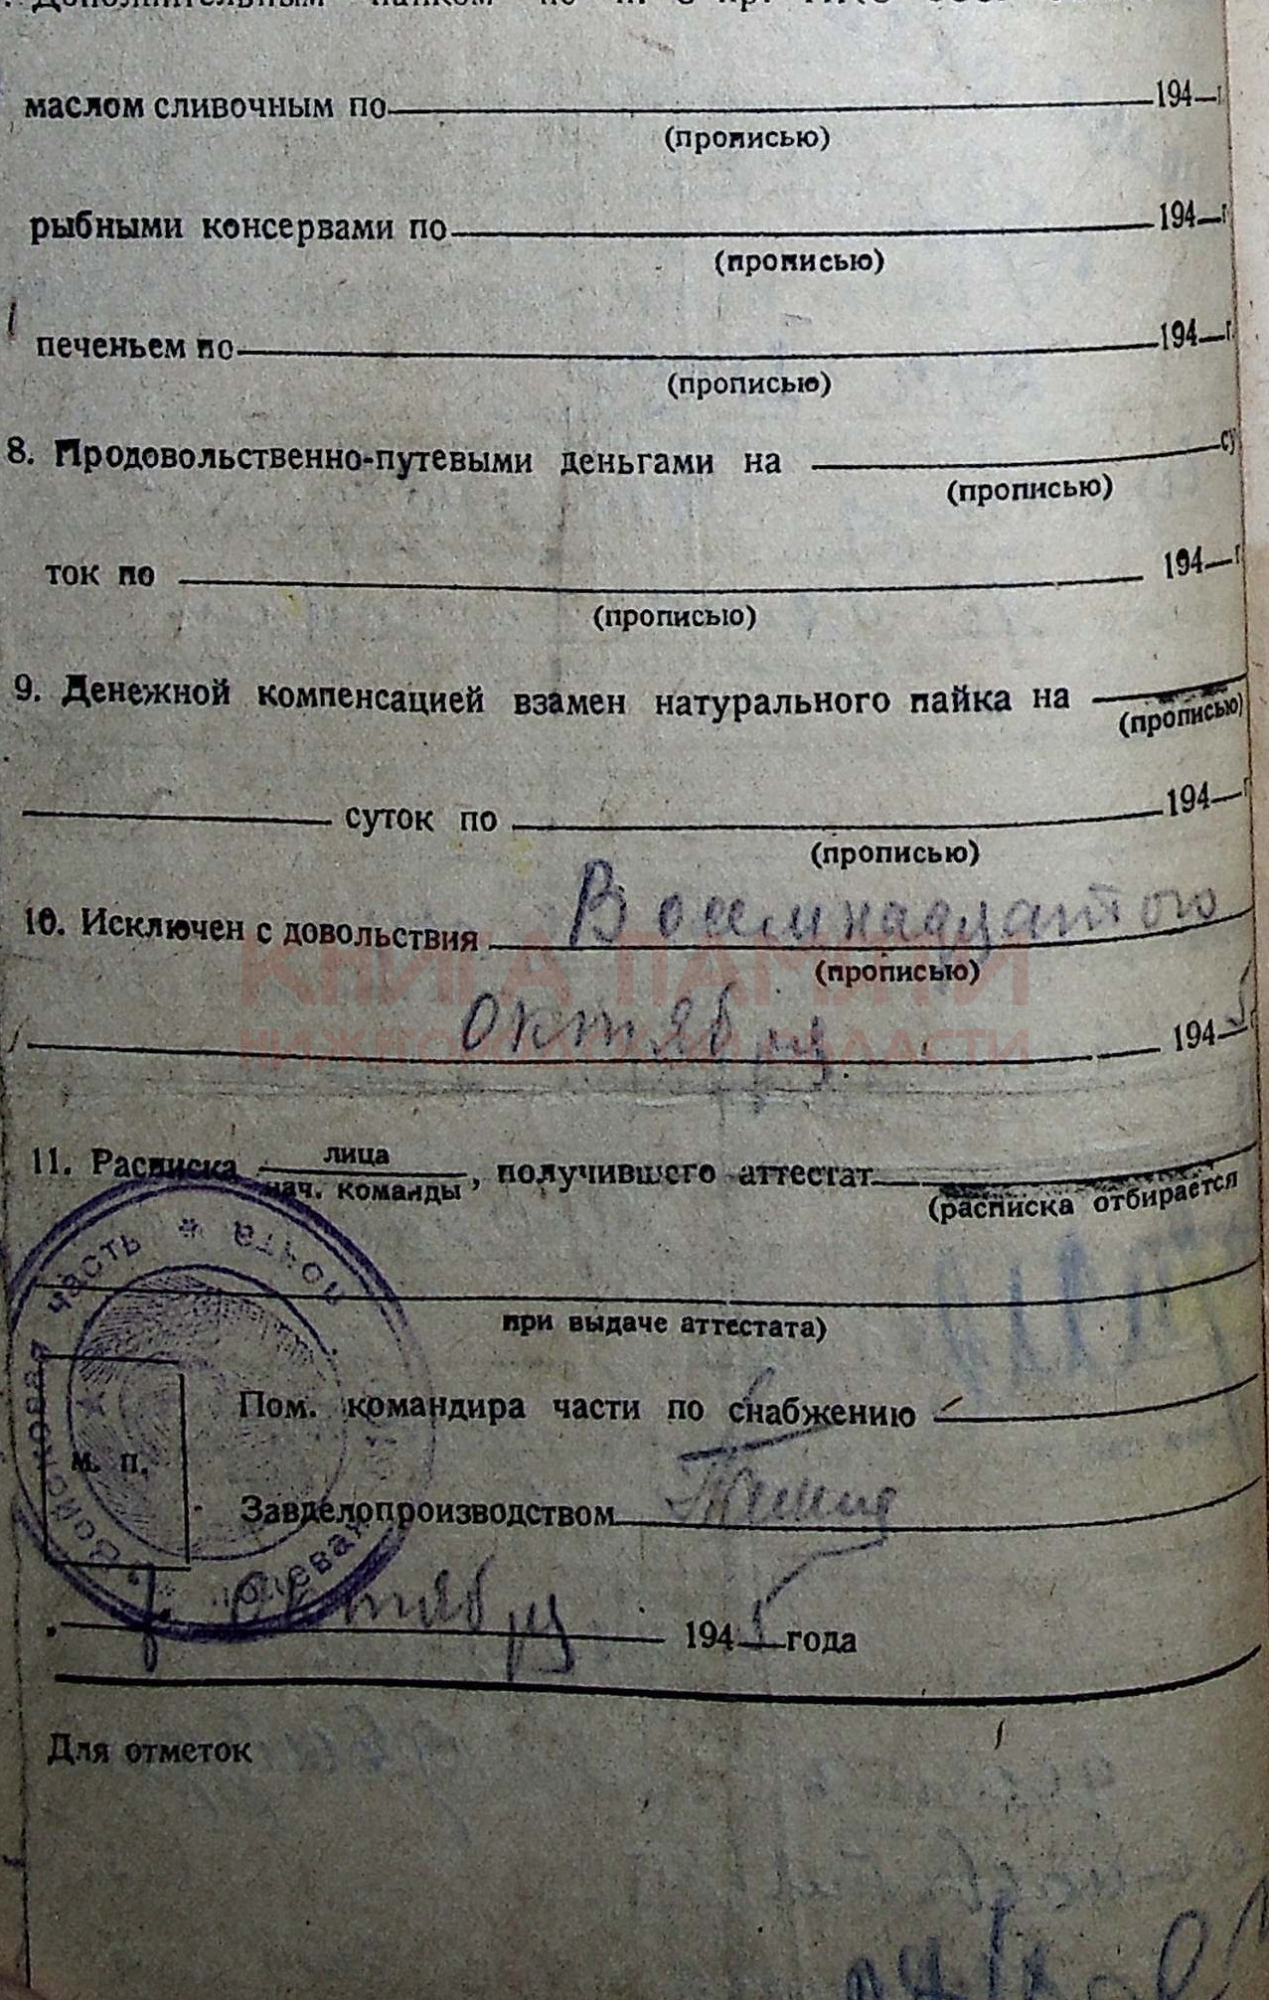 Дополнительным пайком по п.
маслом сливочным по 194 г
(прописью)
рыбными консервами по 194 г
(прописью)
печеньем по 194 г.
(прописью)
8. Продовольственно-путевыми деньгами на су
(прописью)
ток по 194 г
(прописью)
9. Денежной компенсацией взамен натурального пайка на
(прописью)
суток по 194 г
(прописью)
10. Исключен с довольствия Восемнадцатого
(прописью)
Октября 1945
КНИГА ПАМЯТИ
НИЖЕГОРОДСКОЙ ОБЛАСТИ
11. Расписка лица
нач. команды, получившего аттестат
(расписка отбирается
при выдаче аттестата)
Войсковая часть * полевая почта *
Пом. командира части по снабжению
М. П.
Завделопроизводством
Октября 1945 года
Для отметок